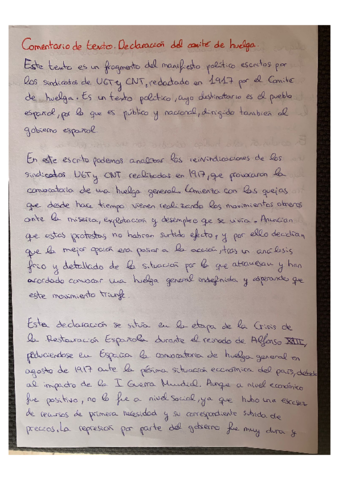 Comentario de texto. Declaración del comité de huelga
Este texto es un fragmento del manifiesto político escritos por
los sindicatos de UGT y CNT, redactado en 1917 por el Comite
de huelga. Es un texto político, cuyo destinatario es el pueblo
español, por lo que es público y nacional, dirigido también al
gobierno español.
En este escrito podemos analizar las reivindicaciones de los
sindicatos UGT y CNT realizadas en 1917, que provocaron la
convocatoria de una huelga general. Comienza con las quejas
que desde hace tiempo vienen realizando los movimientos obreros
ante la miseria, explotacion y desempleo que se vivía. Anuncian
que estas protestas no habían surtido efecto, y por ello decidían
que la mejor opcion era pasar a la acción, tras un análisis
frío y detallado de la situacion por la que atravesaban y han
acordado convocar una huelga general indefinida y esperando que
este movimiento triunfe.
Esta declaración se sitúa en la etapa de la Crisis de
la Restauración Española durante el reinado de Alfonso XIII,
produciendose en España la convocatoria de huelga general en
agosto de 1917 ante la pésima situación económica del país, debido
al impacto de la I Guerra Mundial. Aunque a nivel económico
fue positivo, no lo fue a nivel social, ya que hubo una escasez
de recursos de primera necesidad y su correspondiente subida de
precios. La represion por parte del gobierno fue muy dura y